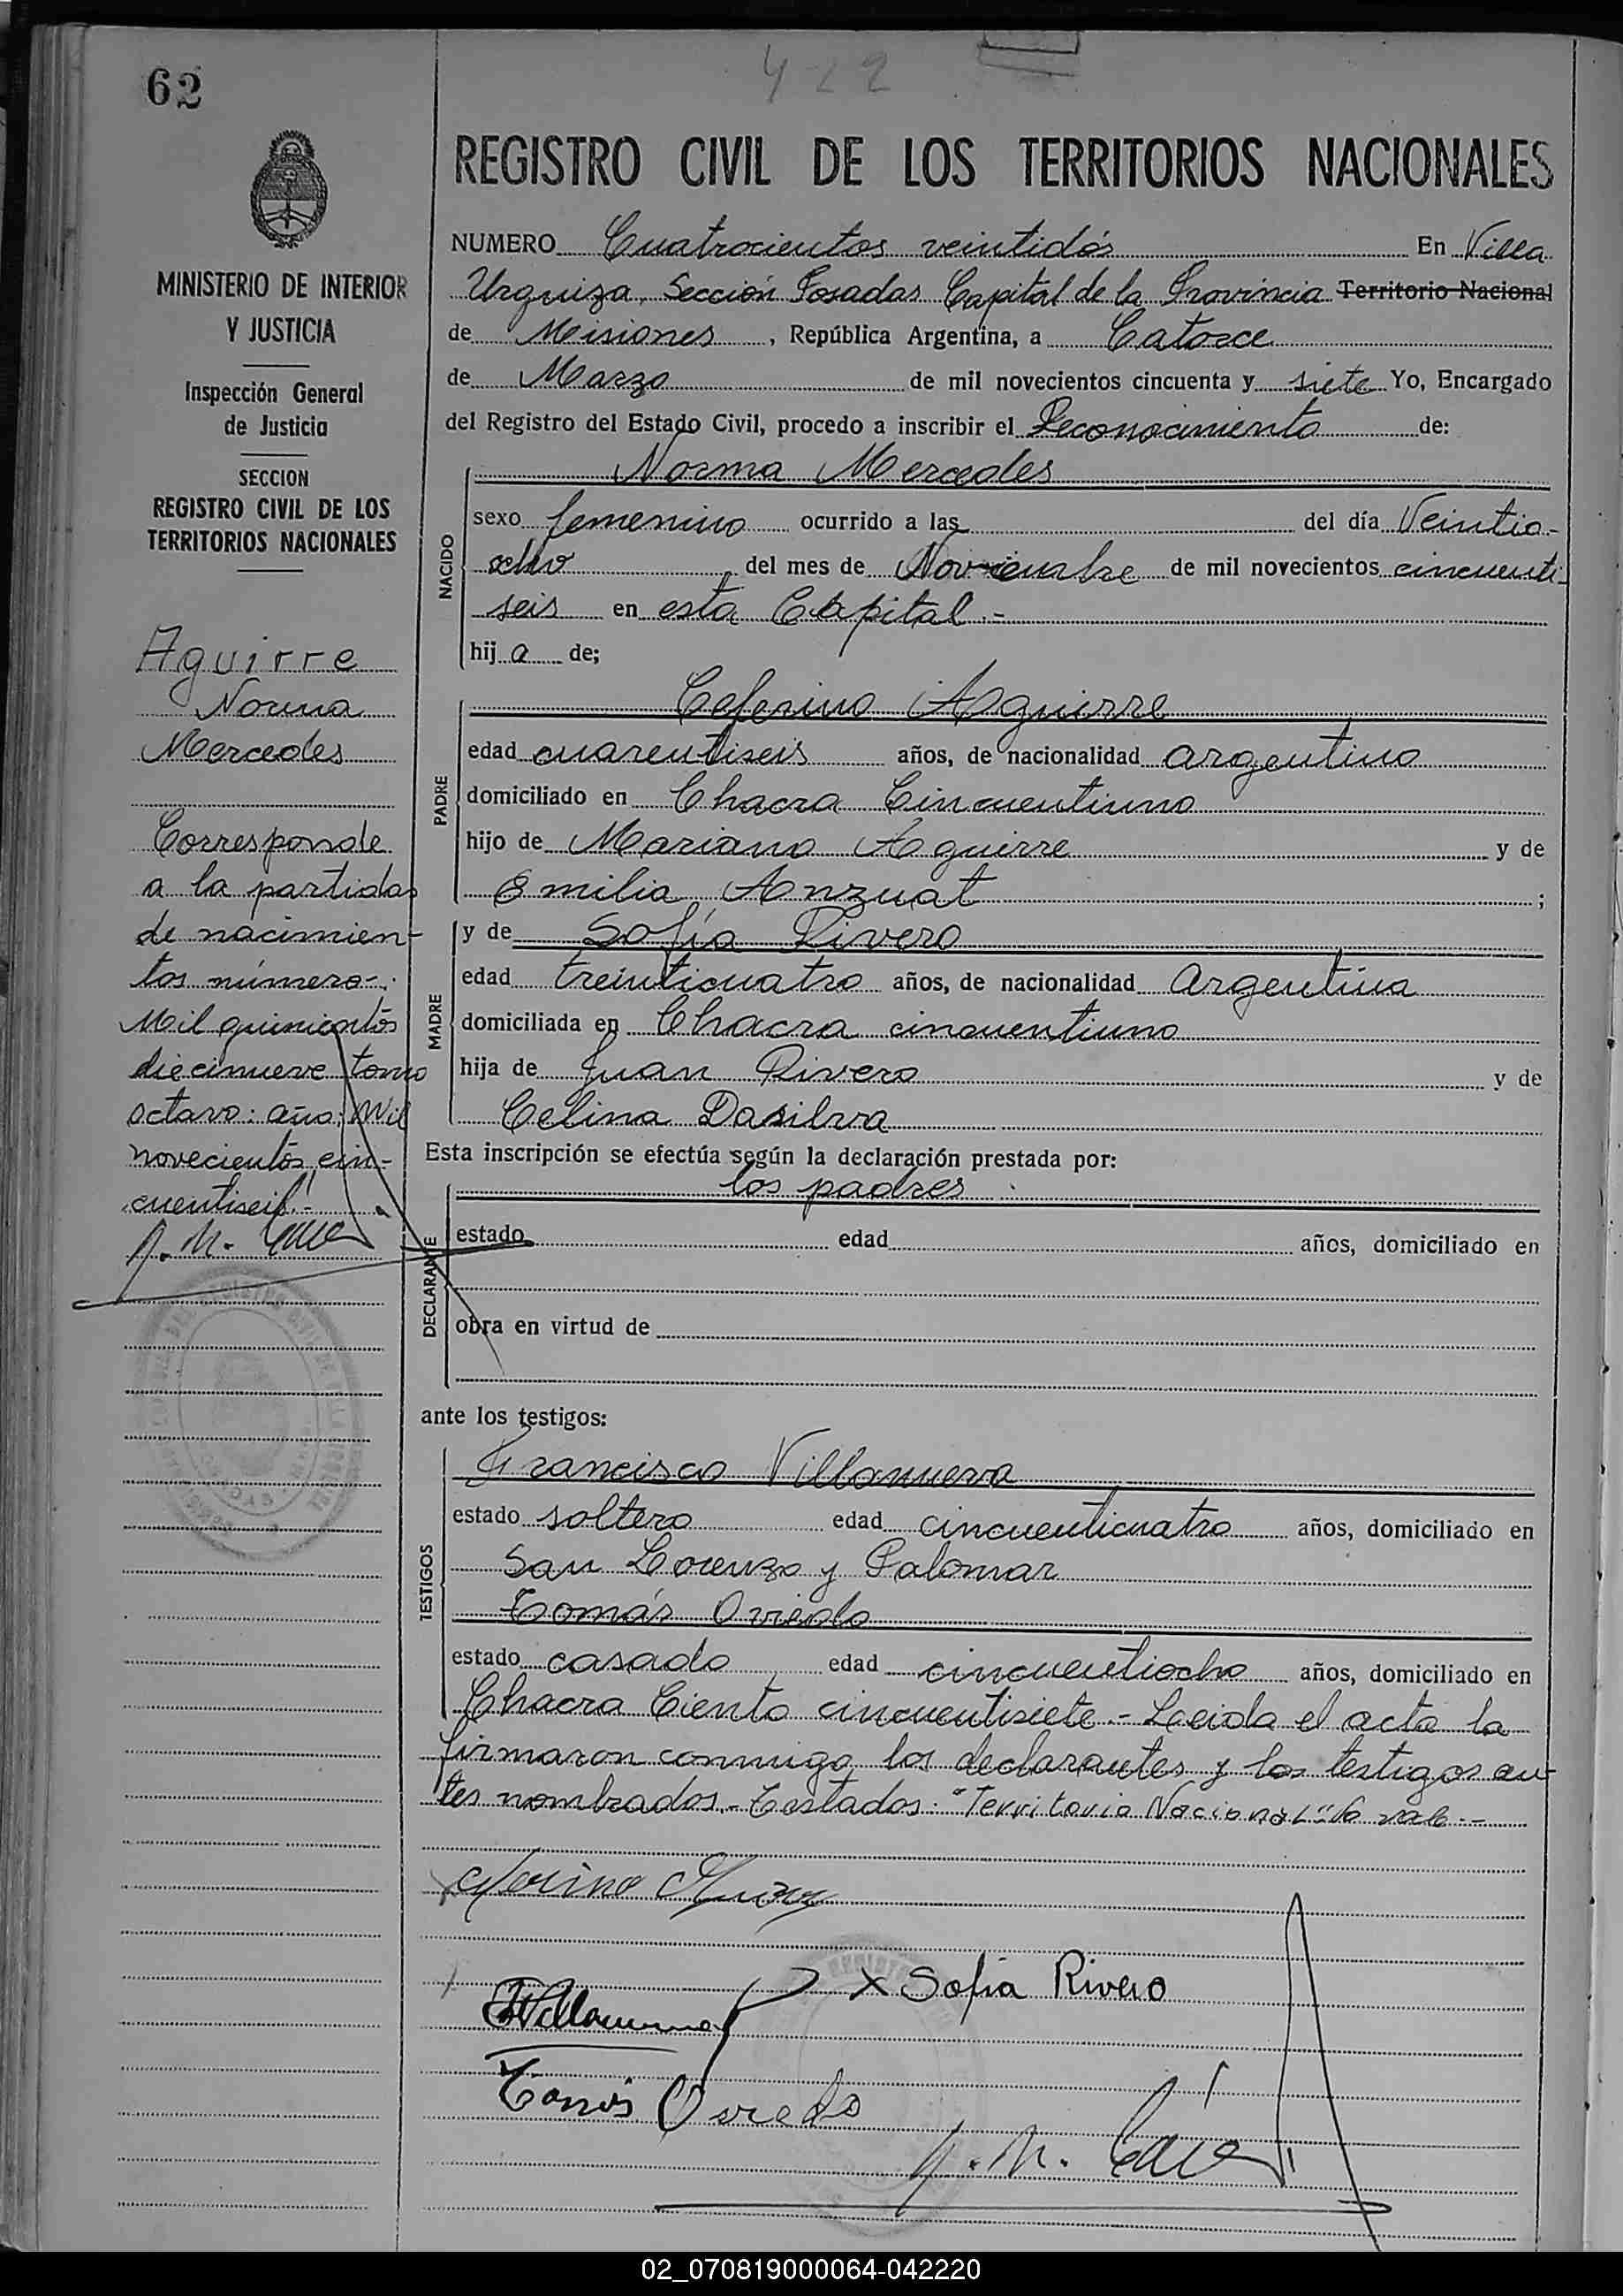 62
422
REGISTRO CIVIL DE LOS TERRITORIOS NACIONALES
MINISTERIO DE INTERIOR
Y JUSTICIA
Inspección General
de Justicia
SECCION
REGISTRO CIVIL DE LOS
TERRITORIOS NACIONALES
Aguirre
Norma
Mercedes
Corresponde
a la partidas
de nacimien-
tos número-
Mil quinientos
diecinueve tomo
octavo: año: Mil
novecientos cin-
cuentiseis!-
NUMERO Cuatrocientos veintidós En Villa
Urquiza, Sección Posadas Capital de la Provincia Territorio Nacional
de Misiones, República Argentina, a Catorce
de Marzo de mil novecientos cincuenta y siete Yo, Encargado
del Registro del Estado Civil, procedo a inscribir el Reconocimiento de:
Norma Mercedes
NACIDO
sexo femenino ocurrido a las del día Veintio-
cho del mes de Noviembre de mil novecientos cincuenti-
seis en esta Capital.-
hija de;
Ceferino Aguirre
PADRE
edad cuarentiseis años, de nacionalidad argentino
domiciliado en Chacra Cincuentiuno
hijo de Mariano Aguirre y de
Emilia Anzuat;
MADRE
y de Sofía Rivero
edad treinticuatro años, de nacionalidad Argentina
domiciliada en Chacra cincuentiuno
hija de Juan Rivero y de
Celina Dasilva
Esta inscripción se efectúa según la declaración prestada por:
los padres
DECLARANTE
estado edad años, domiciliado en
obra en virtud de
ante los testigos:
TESTIGOS
Francisco Villanueva
estado soltero edad cincuenticuatro años, domiciliado en
San Lorenzo y Palomar
Tomás Oviedo
estado casado edad cincuentiocho años, domiciliado en
Chacra Ciento cincuentisiete.- Leida el acta la
firmaron conmigo los declarantes y los testigos an-
tes nombrados.- Testados: "Territorio Nacional" No vale.-
x Sofia Rivero
Tomás Oviedo
02_070819000064-042220